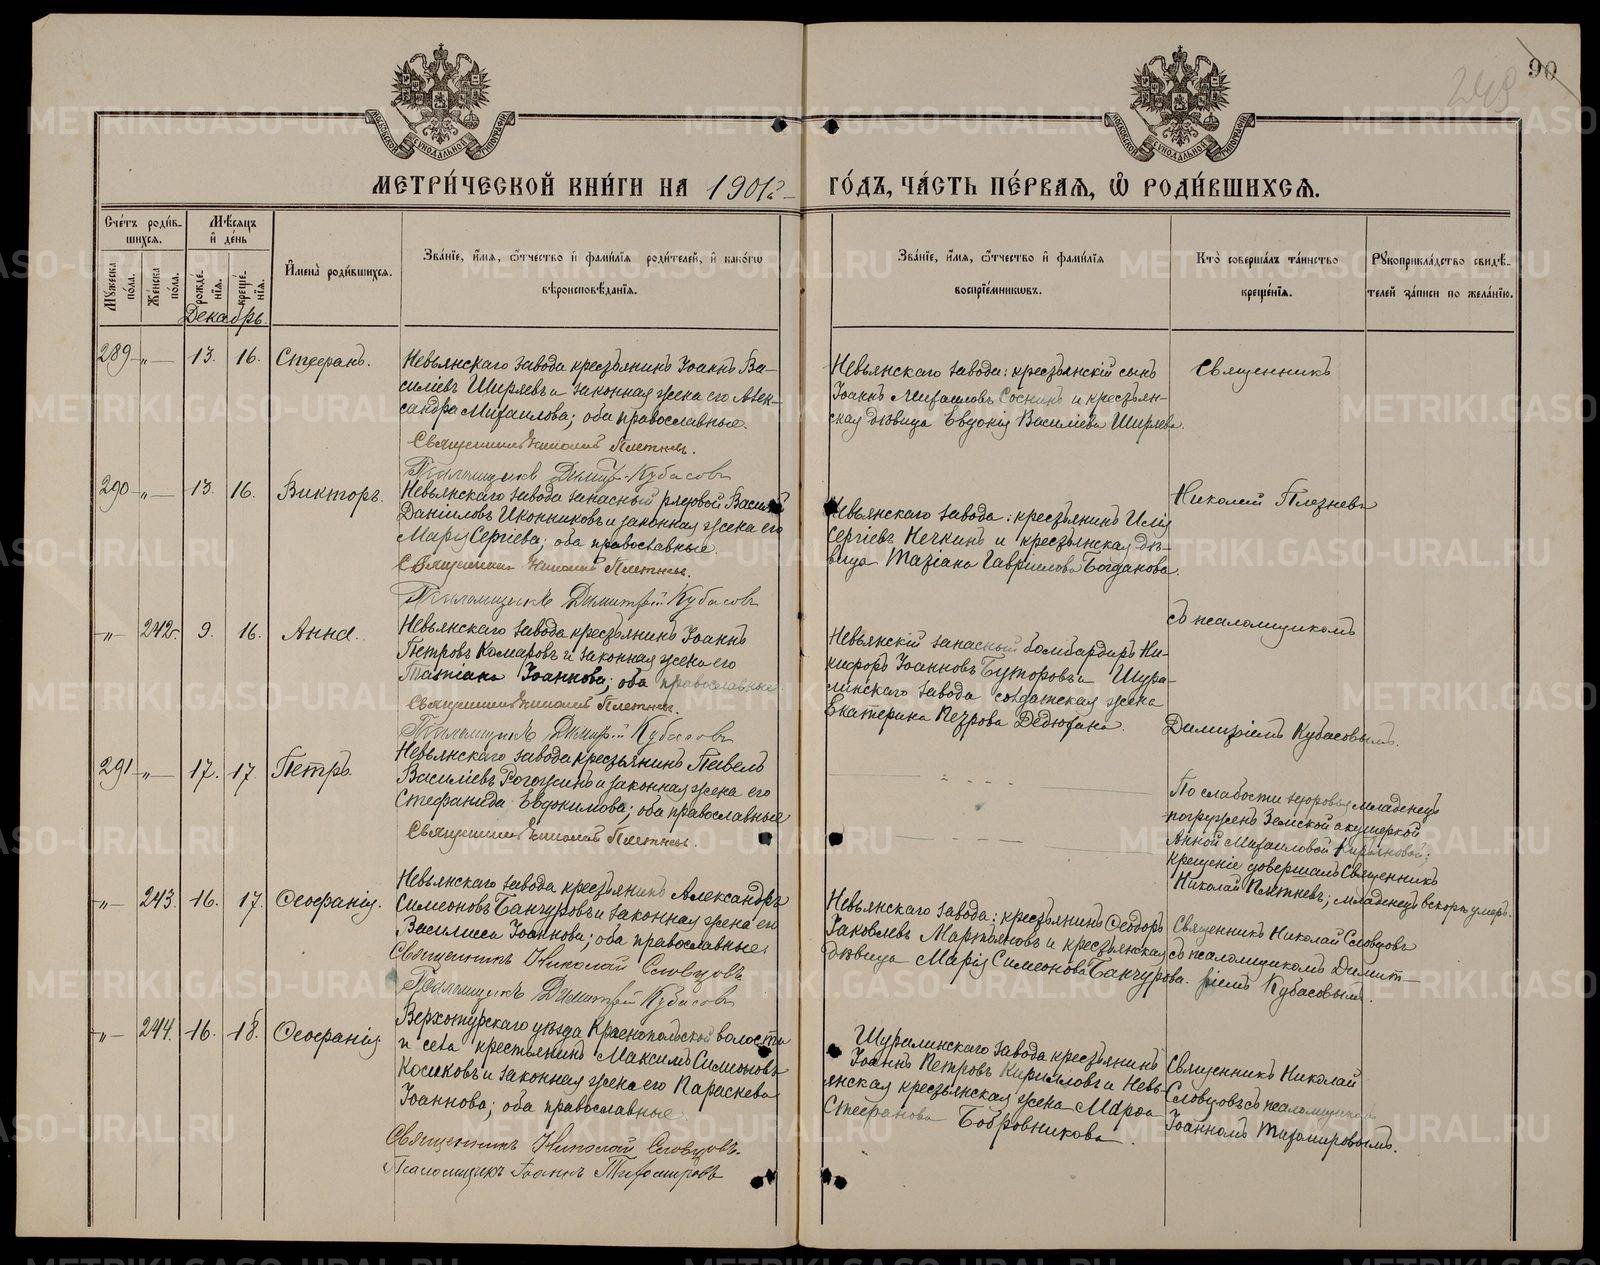 90
249
МЕТРИ́ЧЕСКОЙ КНИ́ГИ НА 1901 г.
ГО́ДЪ, ЧА́СТЬ ПЕ́РВАѦ, Ѽ РОДИ́ВШИХСѦ.
Сче́тъ роди́в-
шихсѧ.
Мѣ́сѧцъ
и҆ де́нь
И҆мена̀ роди́вшихсѧ.
Зва́нїе, и҆́мѧ, ѻ҆́тчество и҆ фами́лїѧ роди́телей, и҆ како́гѡ
вѣроисповѣ́данїѧ.
Зва́нїе, и҆́мѧ, ѻ҆́тчество и҆ фами́лїѧ
воспрїе́мникѡвъ.
Кто̀ соверша́лъ та́инство
креще́нїѧ.
Рꙋкоприкла́дство свидѣ́-
телей за́писи по жела́нїю.
Мꙋ́жеска
по́ла.
Же́нска
по́ла.
рожде́-
нїѧ.
креще́-
нїѧ.
Декабрь.
289 " 13. 16. Стефанъ.
Невьянскаго завода крестьянинъ Іоаннъ Ва-
силіевъ Ширяевъ и законная жена его Алек-
сандра Михаилова; оба православные.
Священникъ Николай Плетневъ.
Псаломщикъ Димитрій Кубасовъ
Невьянскаго завода: крестьянскій сынъ
Іоаннъ Михаиловъ Соснинъ и крестьян-
ская дѣвица Евдокія Василіева Ширяева.
Священникъ
290 " 13. 16. Викторъ.
Невьянскаго завода запасный рядовой Василій
Даніиловъ Иконниковъ и законная жена его
Марія Сергіева; оба православные.
Священникъ Николай Плетневъ.
Псаломщикъ Димитрій Кубасовъ
Невьянскаго завода: крестьянинъ Илія
Сергіевъ Нечкинъ и крестьянская дѣ-
вица Татіана Гавриилова Богданова.
Николай Плетневъ
" 242. 9. 16. Анна.
Невьянскаго завода крестьянинъ Іоаннъ
Петровъ Комаровъ и законная жена его
Татіана Іоаннова; оба православные.
Священникъ Николай Плетневъ.
Псаломщикъ Димитрій Кубасовъ
Невьянскій запасный бомбардиръ Ни-
кифоръ Іоанновъ Буторовъ и Шура-
линскаго завода солдатская жена
Екатерина Петрова Дедюхина.
съ псаломщикомъ
Димитріемъ Кубасовымъ.
291 " 17. 17. Петръ.
Невьянскаго завода крестьянинъ Павелъ
Василіевъ Рогожинъ и законная жена его
Стефанида Евдокимова; оба православные
Священникъ Николай Плетневъ.
По слабости здоровья младенецъ
погруженъ Земской акушеркой
Анной Михаиловой Кирьяновой;
крещеніе довершалъ Священникъ
Николай Плетневъ; младенецъ вскорѣ умеръ.
" 243. 16. 17. Феофанія.
Невьянскаго завода крестьянинъ Александръ
Симеоновъ Бачуровъ и законная жена его
Василиса Іоаннова; оба православные.
Священникъ Николай Словцовъ
Псаломщикъ Димитрій Кубасовъ
Невьянскаго завода: крестьянинъ Феодоръ
Іаковлевъ Мартьяновъ и крестьянская
дѣвица Марія Симеонова Бачурова.
Священникъ Николай Словцовъ
съ псаломщикомъ Димит-
ріемъ Кубасовымъ.
" 244. 16. 18. Феофанія
Верхотурскаго уѣзда Краснопольской волости
и села крестьянинъ Максимъ Симеоновъ
Косиковъ и законная жена его Параскева
Іоаннова; оба православные.
Священникъ Николай Словцовъ.
Псаломщикъ Іоаннъ Тихомировъ
Шуралинскаго завода крестьянинъ
Іоаннъ Петровъ Кирилловъ и Невь-
янская крестьянская жена Марфа
Стефанова Бобровникова.
Священникъ Николай
Словцовъ съ псаломщикомъ
Іоанномъ Тихомировымъ.
METRIKI.GASO-URAL.RU